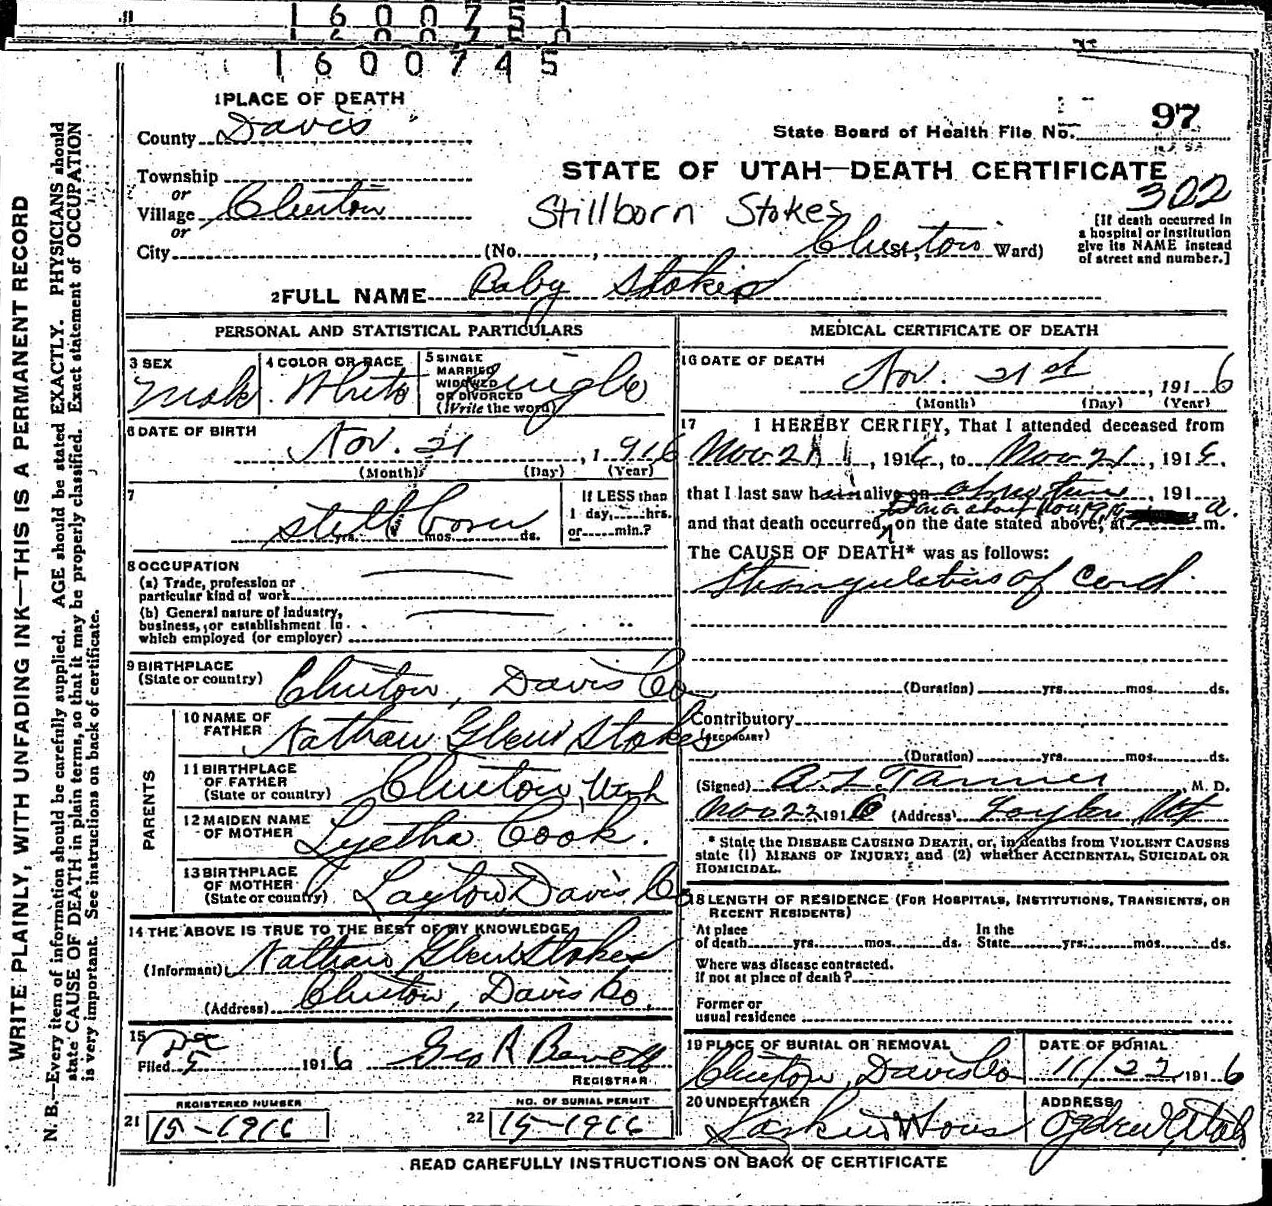 1600751
1600745
1 PLACE OF DEATH
County Davis
State Board of Health File No. 97
Township
or
Village Clinton
or
City
STATE OF UTAH—DEATH CERTIFICATE
302
Stillborn Stokes
(No. , Clinton St.; Ward)
[If death occurred in
a hospital or institution
give its NAME instead
of street and number.]
2 FULL NAME Baby Stokes
PERSONAL AND STATISTICAL PARTICULARS
3 SEX
Male
4 COLOR OR RACE
White
5 SINGLE
MARRIED
WIDOWED
OR DIVORCED
(Write the word)
Single
6 DATE OF BIRTH
Nov. 21, 1916
(Month) (Day) (Year)
7
Still born
yrs. mos. ds.
If LESS than
1 day, hrs.
or min.?
8 OCCUPATION
(a) Trade, profession or
particular kind of work
(b) General nature of industry,
business, or establishment in
which employed (or employer)
9 BIRTHPLACE
(State or country)
Clinton, Davis Co
PARENTS
10 NAME OF
FATHER
Nathan Glenn Stokes
11 BIRTHPLACE
OF FATHER
(State or country)
Clinton, Utah
12 MAIDEN NAME
OF MOTHER
Lyetha Cook.
13 BIRTHPLACE
OF MOTHER
(State or country)
Layton Davis Co
14 THE ABOVE IS TRUE TO THE BEST OF MY KNOWLEDGE
(Informant) Nathan Glenn Stokes
(Address) Clinton, Davis Co.
15
Filed Dec 5 1916
Geo R Bennett
REGISTRAR
REGISTERED NUMBER
21 15-1916
NO. OF BURIAL PERMIT
22 15-1916
MEDICAL CERTIFICATE OF DEATH
16 DATE OF DEATH
Nov. 21st, 1916
(Month) (Day) (Year)
17 I HEREBY CERTIFY, That I attended deceased from
Nov 21, 1916, to Nov 21, 1916.
that I last saw him alive on at no time, 191
and that death occurred, on the date stated above, at a. m.
The CAUSE OF DEATH* was as follows:
Strangulation of Cord.
(Duration) yrs. mos. ds.
Contributory
(SECONDARY)
(Duration) yrs. mos. ds.
(Signed) A L Tanner M. D.
Nov 22 1916 (Address) Layton Utah
* State the DISEASE CAUSING DEATH, or, in deaths from VIOLENT CAUSES
state (1) MEANS OF INJURY; and (2) whether ACCIDENTAL, SUICIDAL OR
HOMICIDAL.
18 LENGTH OF RESIDENCE (FOR HOSPITALS, INSTITUTIONS, TRANSIENTS, OR
RECENT RESIDENTS)
At place
of death yrs. mos. ds.
In the
State yrs. mos. ds.
Where was disease contracted.
If not at place of death?
Former or
usual residence
19 PLACE OF BURIAL OR REMOVAL
Clinton, Davis Co
DATE OF BURIAL
11/22 1916
20 UNDERTAKER
Larkin & Sons
ADDRESS
Ogden, Utah
READ CAREFULLY INSTRUCTIONS ON BACK OF CERTIFICATE
WRITE PLAINLY, WITH UNFADING INK—THIS IS A PERMANENT RECORD
N. B.—Every item of information should be carefully supplied. AGE should be stated EXACTLY. PHYSICIANS should
state CAUSE OF DEATH in plain terms, so that it may be properly classified. Exact statement of OCCUPATION
is very important. See instructions on back of certificate.